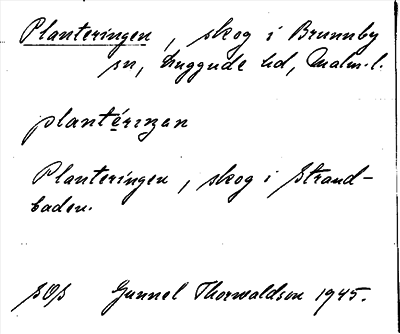 Planteringen, skog i Brunnby
sn, Luggude hd, Malm. l.
plantérɪŋan
Planteringen, skog i Strand-
baden.
Gunnel Thorwaldson 1945.